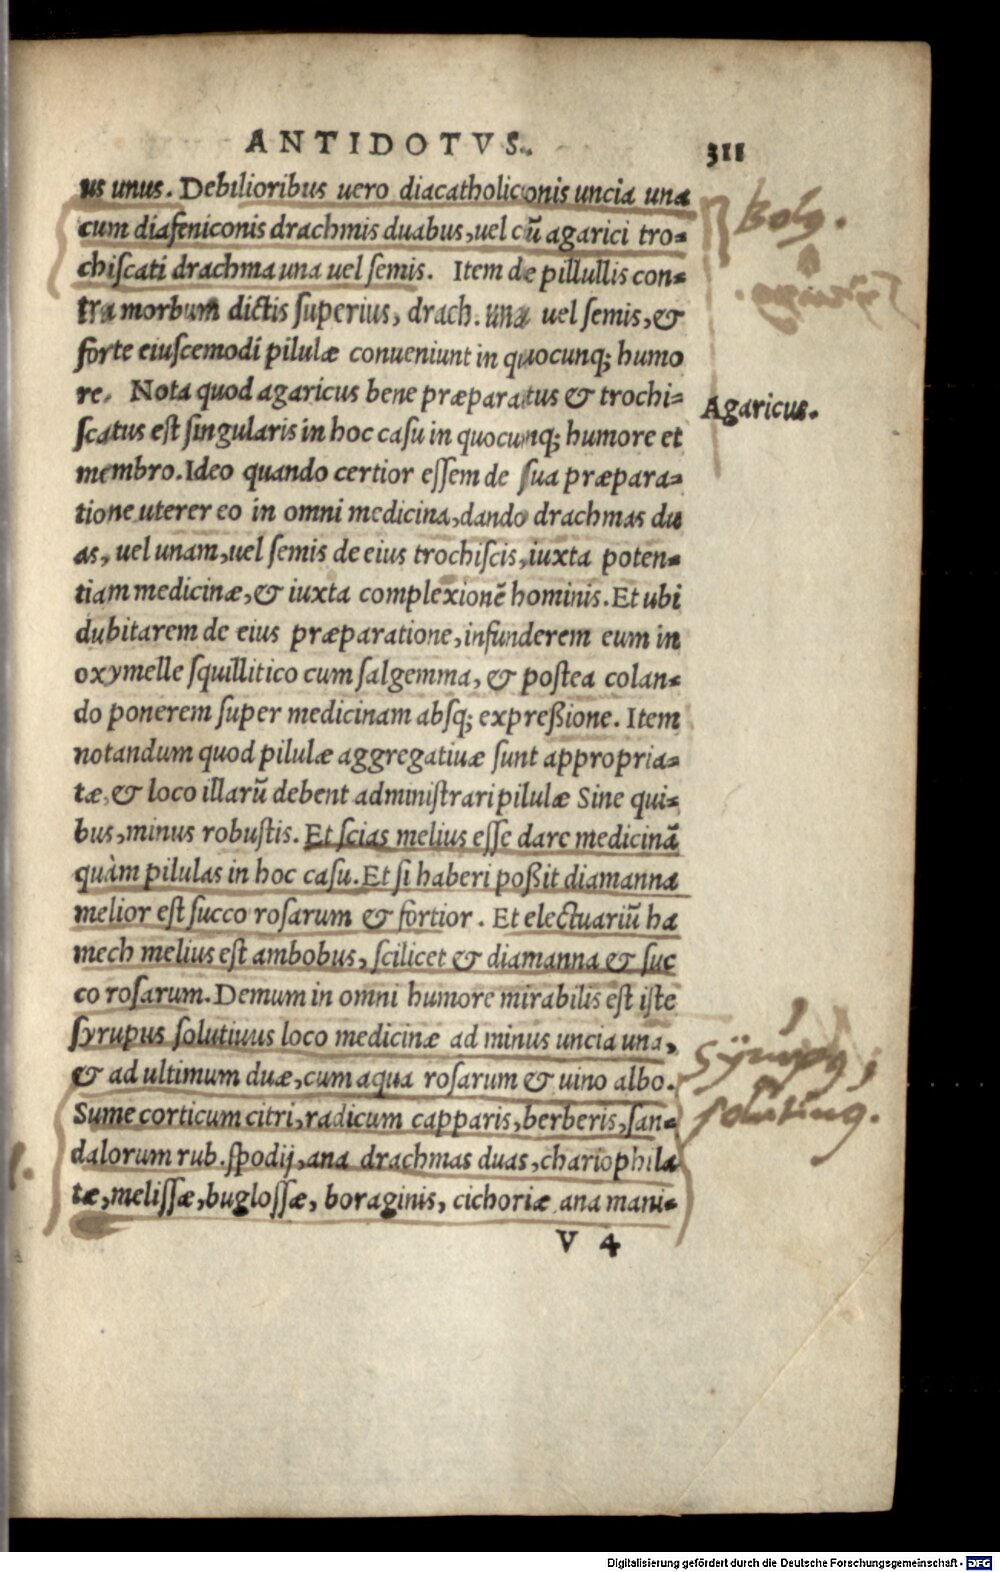 ANTIDOTVS. 311
us unus. Debilioribus uero diacatholiconis uncia una
cum diafeniconis drachmis duabus, uel cū agarici tro-
chiſcati drachma una uel ſemis. Item de pillullis con-
tra morbum dictis ſuperius, drach. una uel ſemis, &
forte eiuſcemodi pilulæ conueniunt in quocunq; humo
re. Nota quod agaricus bene præparatus & trochi-
ſcatus eſt ſingularis in hoc caſu in quocunq; humore et
membro. Ideo quando certior eſſem de ſua præpara-
tione uterer eo in omni medicina, dando drachmas du
as, uel unam, uel ſemis de eius trochiſcis, iuxta poten-
tiam medicinæ, & iuxta complexionē hominis. Et ubi
dubitarem de eius præparatione, infunderem eum in
oxymelle ſquillitico cum ſalgemma, & poſtea colan-
do ponerem ſuper medicinam abſq; expreßione. Item
notandum quod pilulæ aggregatiuæ ſunt appropria-
tæ, & loco illarū debent adminiſtrari pilulæ Sine qui-
bus, minus robuſtis. Et ſcias melius eſſe dare medicinā
quàm pilulas in hoc caſu. Et ſi haberi poßit diamanna
melior eſt ſucco roſarum & fortior. Et electuariū ha
mech melius eſt ambobus, ſcilicet & diamanna & ſuc
co roſarum. Demum in omni humore mirabilis eſt iſte
ſyrupus ſolutiuus loco medicinæ ad minus uncia una,
& ad ultimum duæ, cum aqua roſarum & uino albo.
Sume corticum citri, radicum capparis, berberis, ſan-
dalorum rub. ſpodij, ana drachmas duas, chariophila
tæ, meliſſæ, bugloſſæ, boraginis, cichoriæ ana mani-
V 4
Bolꝰ.
Agaricus.
Syrupꝰ
ſolutiuꝰ.
Digitalisierung gefördert durch die Deutsche Forschungsgemeinschaft - DFG